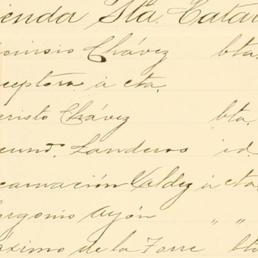 ienda Sta. Catar
ionisio Chávez bta.
ceptora á cta.
cristo Chávez bta.
ecund. Landeros id.
carnación Valdez á cta.
urgonio Ayón " "
áximo de la Torre bta